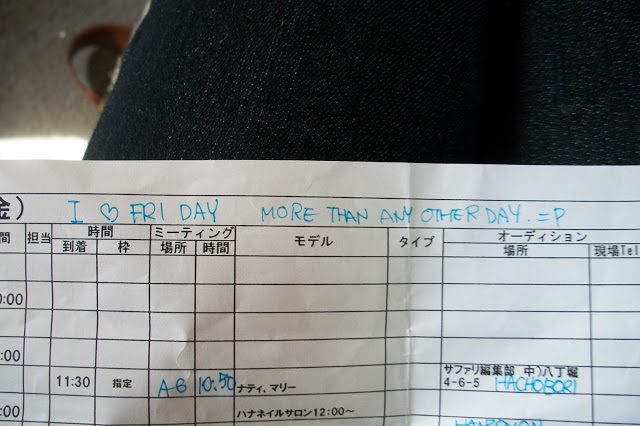 金)
I ♡ FRI DAY MORE THAN ANY OTHER DAY. =P
間 担当 時間 ミーティング モデル タイプ オーディション
到着 枠 場所 時間 場所 現場Tel
0:00
:00
サファリ編集部 中)八丁堀
11:30 指定 A-6 10:50 ナティ、マリー 4-6-5 HACHOBORI
:00 ハナネイルサロン12:00~